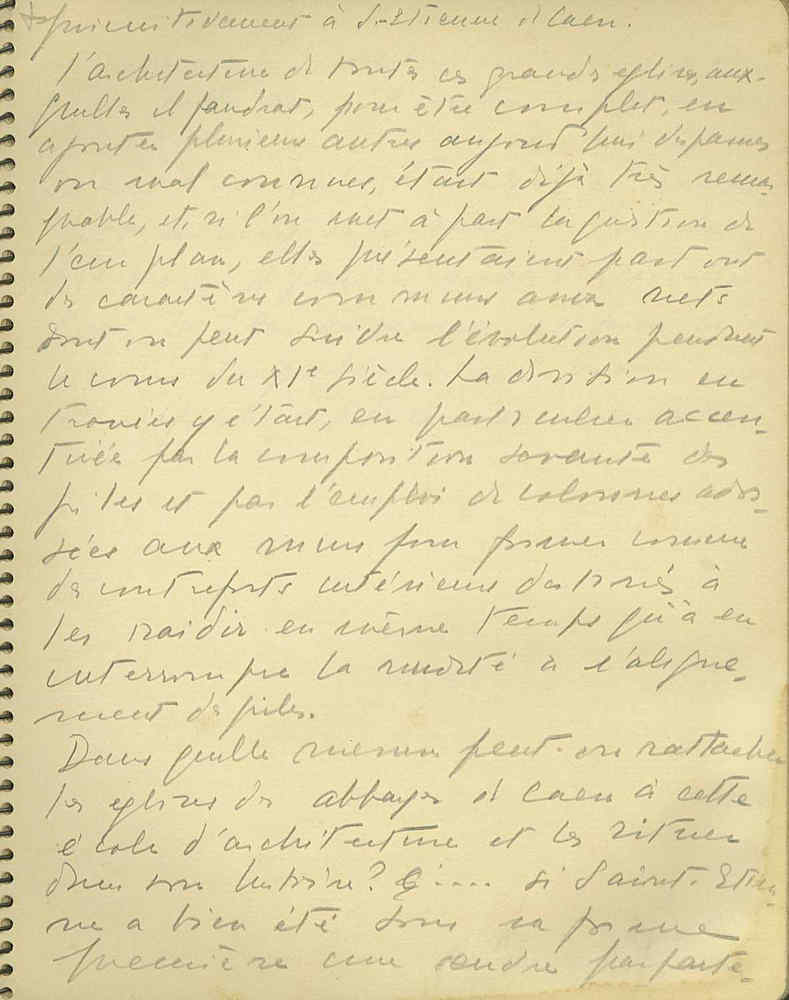 primitivement à St-Etienne de Caen.
l'architecture de toutes ces grandes églises, aux-
quelles il faudrait, pour être complet, en
ajouter plusieurs autres aujourd'hui disparues
ou mal connues, était déjà très remar-
quable, et, si l'on met à part la question de
leur plan, elles présentaient partout
des caractères communs assez nets
dont on peut suivre l'évolution pendant
le cours du XIe siècle. La division en
travées y était, en particulier accen-
tuée par la composition savante des
piles et par l'emploi de colonnes ados-
sées aux murs pour former comme
des contreforts intérieurs destinés à
les raidir en même temps qu'à en
interrompre la nudité à l'aligne-
ment des piles.
Dans quelle mesure peut-on rattacher
les églises des abbayes de Caen à cette
école d'architecture et les situer
dans son histoire? .... si Saint-Etien-
ne a bien été sous sa forme
première une œuvre parfaite-